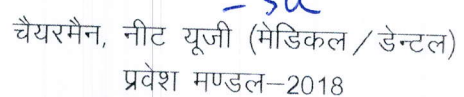 चैयरमैन, नीट यूजी (मेडिकल / डेन्टल)
प्रवेश मण्डल–2018